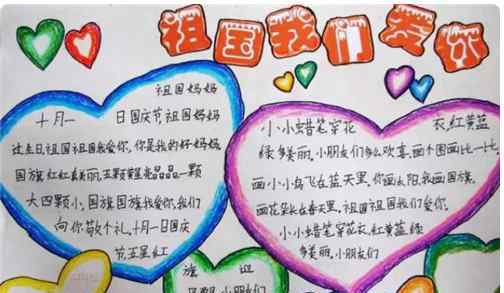 祖国我们爱你
祖国妈妈
十月一 日国庆节祖国妈妈
过生日祖国祖国我爱你,你是我的好妈妈,
国旗红红真美丽,五颗星星亮晶晶一颗
大四颗小,国旗国旗我爱你,我们
向你敬个礼,十月一日国庆
节五星红
小小蜡笔穿花 衣,红黄蓝
绿多美丽,小朋友们多么欢喜,画个图画比一比,
画小小鸟飞在蓝天里,你画太阳,我画国旗,
画花朵长在春天里,祖国祖国我们爱你,
小小蜡笔穿花衣,红黄蓝绿
多美丽,小朋友们
旗